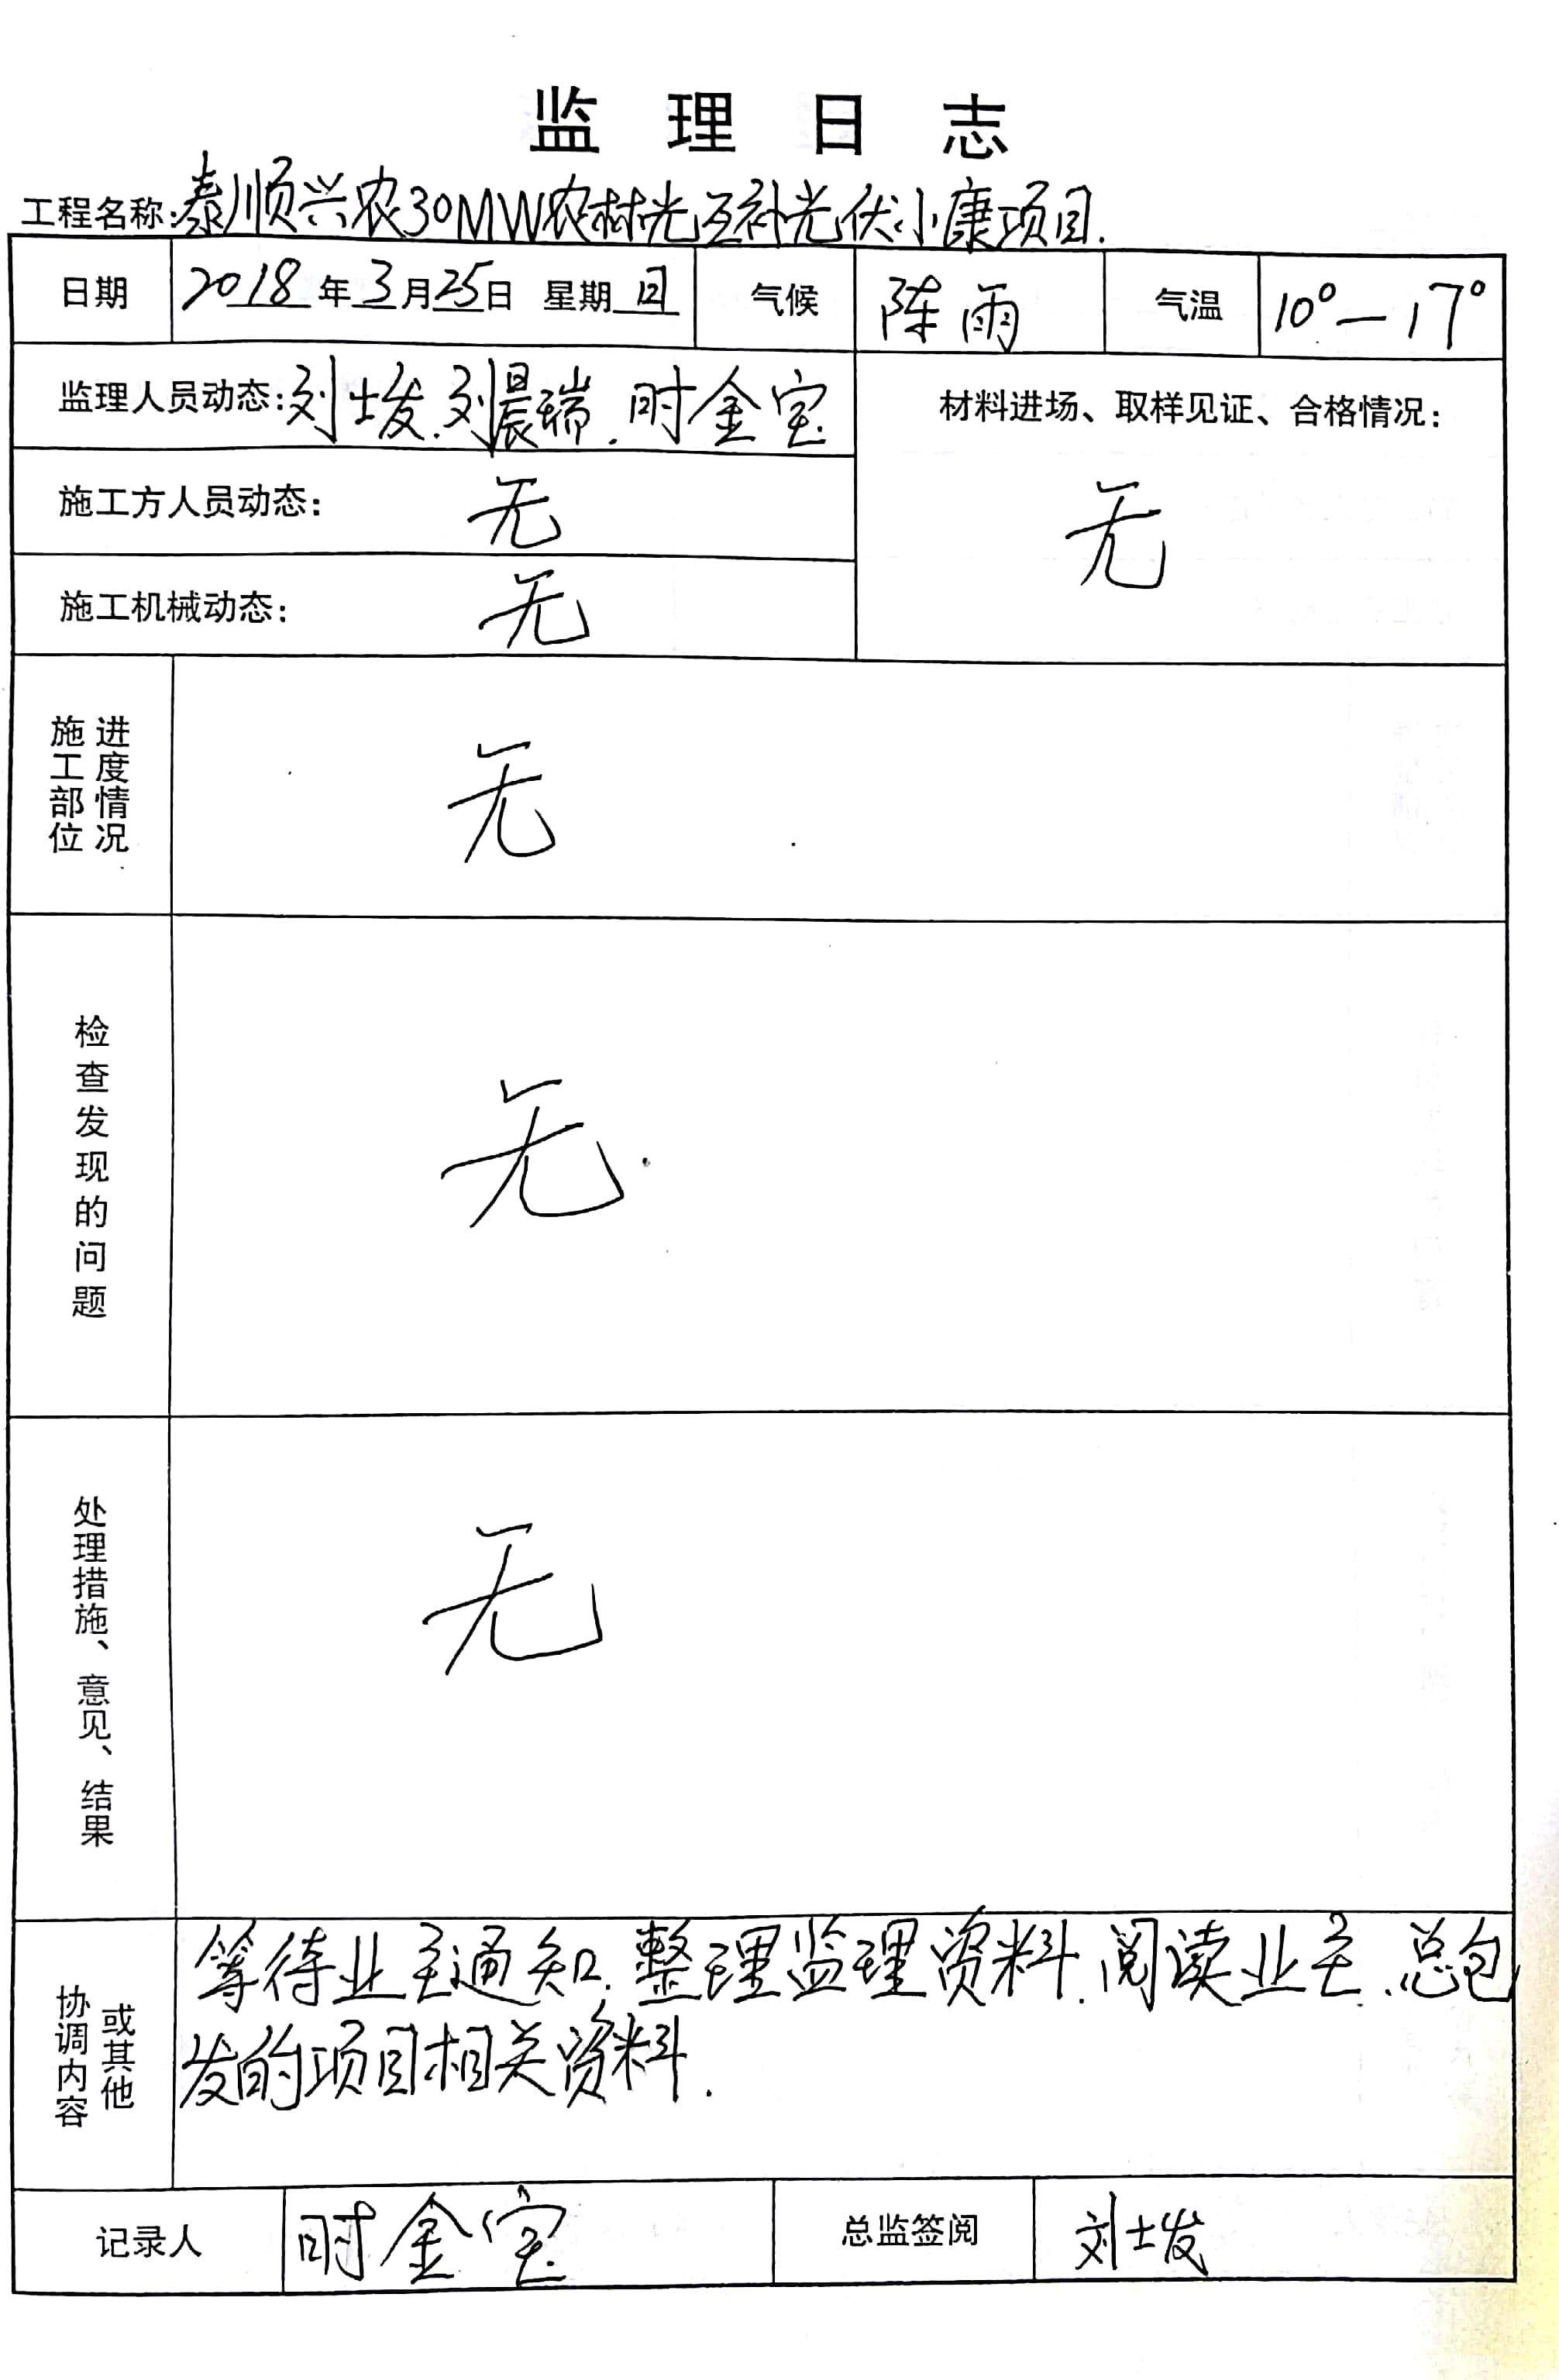 监理日志
工程名称:泰顺兴农30MW农村光互补光伏小康项目.
日期 2018年3月25日 星期日 气候 阵雨 气温 10°—17°
监理人员动态:刘士发.刘晨瑞.时金宝 材料进场、取样见证、合格情况:
施工方人员动态: 无 无
施工机械动态: 无
施工部位 进度情况 无
检查发现的问题 无.
处理措施、意见、结果 无
协调内容 或其他 等待业主通知.整理监理资料.阅读业主.总包
发的项目相关资料.
记录人 时金宝 总监签阅 刘士发